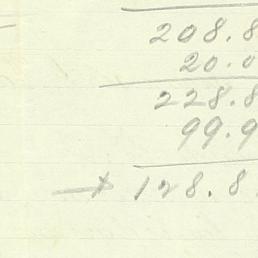 208.8
20.0
228.8
99.9
128.8